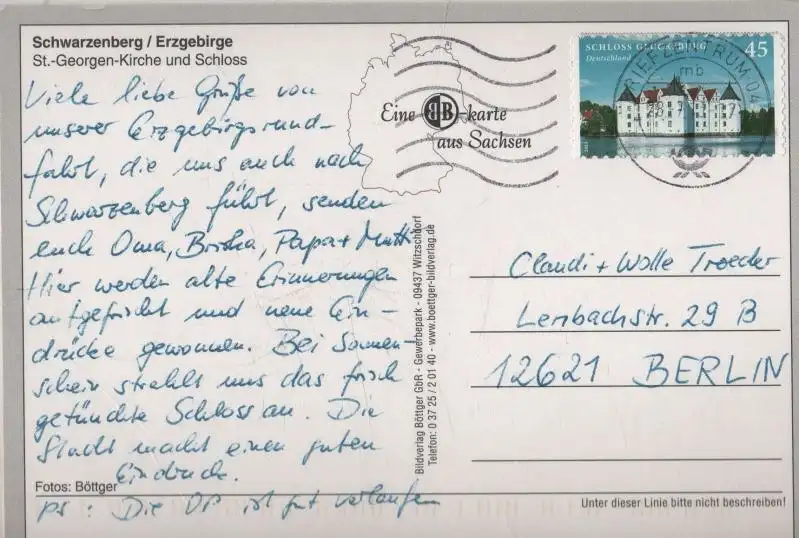 Schwarzenberg / Erzgebirge
St.-Georgen-Kirche und Schloss
Viele liebe Grüße von
unserer Erzgebirgsrund-
fahrt, die uns auch nach
Schwarzenberg führt, senden
euch Oma, Papa + Mutti
Hier werden alte Erinnerungen
aufgefrischt und neue Ein-
drücke gewonnen. Bei Sonnen-
schein strahlt uns das frisch
getünchte Schloss an. Die
Stadt macht einen guten
Eindruck.
Fotos: Böttger
ps: Die OP ist gut verlaufen
Eine BB-karte
aus Sachsen
Bildverlag Böttger GbR - Gewerbepark - 09437 Witzschdorf
Telefon: 0 37 25 / 2 01 40 - www.boettger-bildverlag.de
SCHLOSS GLÜCKSBURG 45
Deutschland
BRIEFZENTRUM 04
mb
Claudi + Wolle Troeder
Lenbachstr. 29 B
12621 BERLIN
Unter dieser Linie bitte nicht beschreiben!